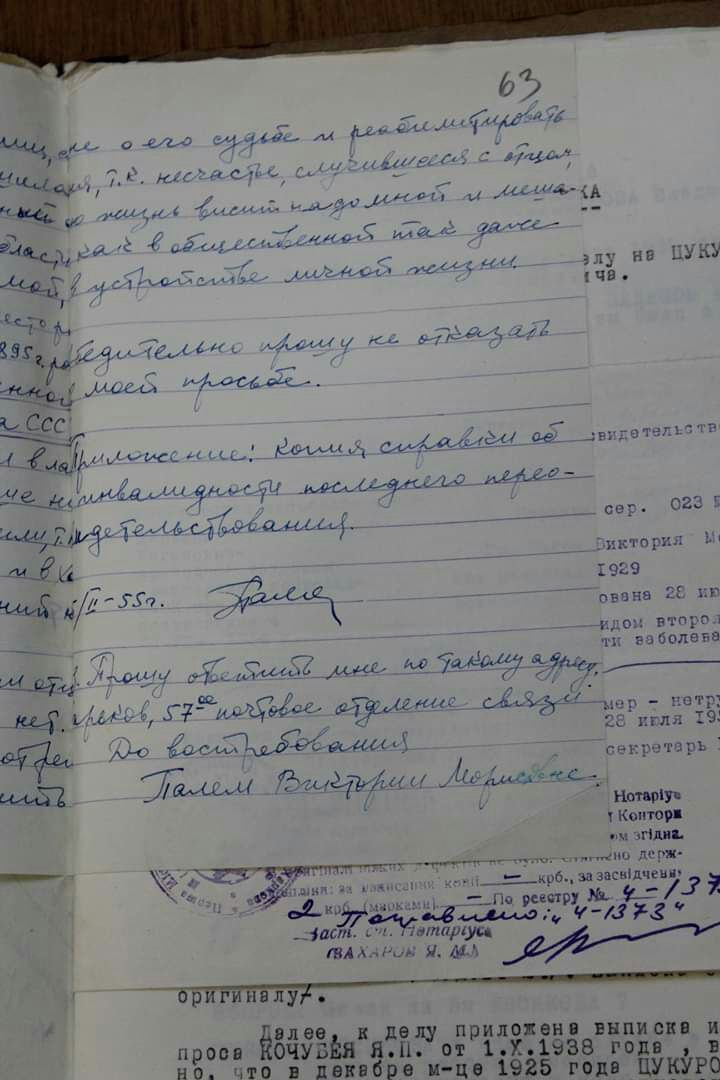 63
о его судьбе и реабилитировать
т.к. несчастье, случившееся с отцом,
жизнь висит надо мной и меша-
как в общественной так даже
в устройстве личной жизни.
бедительно прошу не отказать
моей просьбе.
Приложение: копия справки об
инвалидности последнего перео-
детельствования.
/II-55г.
Прошу ответить мне по такому адресу.
рьков, 57ое почтовое отделение связи
До востребования
Палем Виктории Морисовне.
895 г.
а ССС
и в ла
нет.
КА
елу на ЦУКУ
ича.
свидетельство
сер. 023
Виктория М
1929
ована 28 ию
идом второ
ти заболева
мер - нетру
28 июля 19
секретарь
Нотаріус
Контори
ом згідна.
держ-
крб., за засвідчення
2 крб. (марками) — По реєстру № 4-1373
Поправлено: "4-1373"
Заст. ст. Нотаріуса
(ЗАХАРОВ Я. М.)
оригиналу/.
Далее, к делу приложена выписка и
проса КОЧУБЕЯ Я.П. от 1.X.1938 года , в
но, что в декабре м-це 1925 года ЦУКУРО